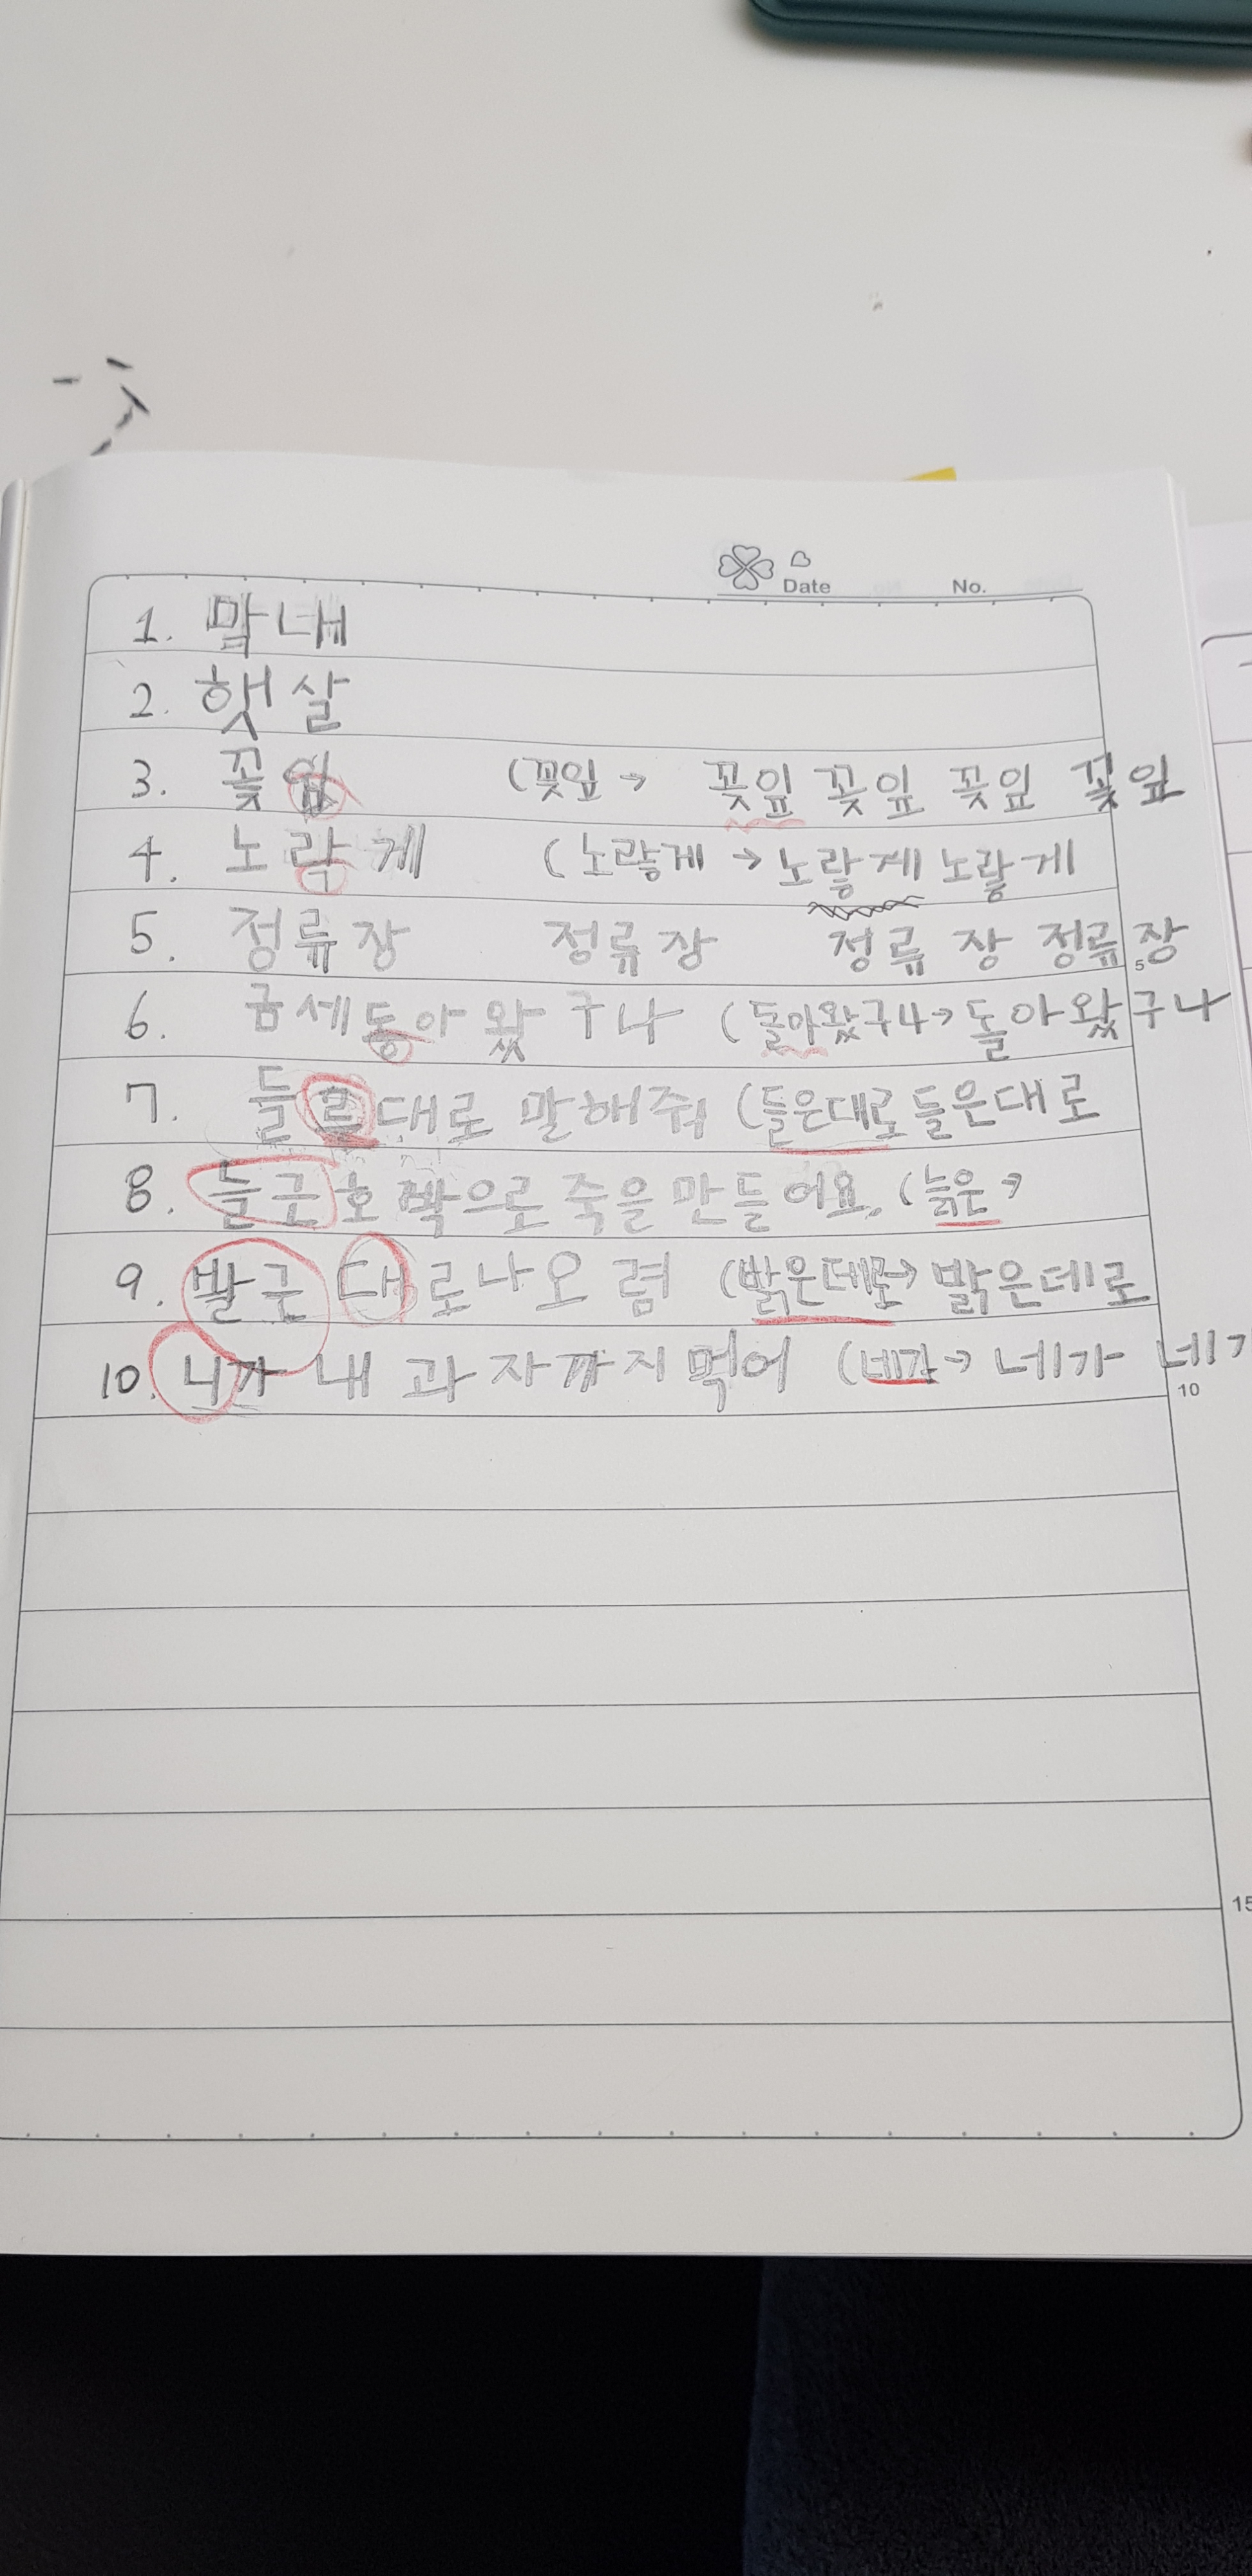 Date No.
1. 막내
2. 햇살
3. 꽃잎 (꽃잎→ 꽃잎 꽃잎 꽃잎 꽃잎
4. 노랗게 (노랗게→노랗게 노랗게
5. 정류장 정류장 정류장 정류장
5
6. 금세 돌아왔구나 (돌아왔구나→돌아왔구나
7. 들른대로 말해줘 (들은대로 들은대로
8. 늘근호박으로 죽을 만들어요. (늙은→
9. 발근 대로나오렴 (밝은데로→ 밝은데로
10. 니가 내 과자까지 먹어 (네가→ 네가
10
15